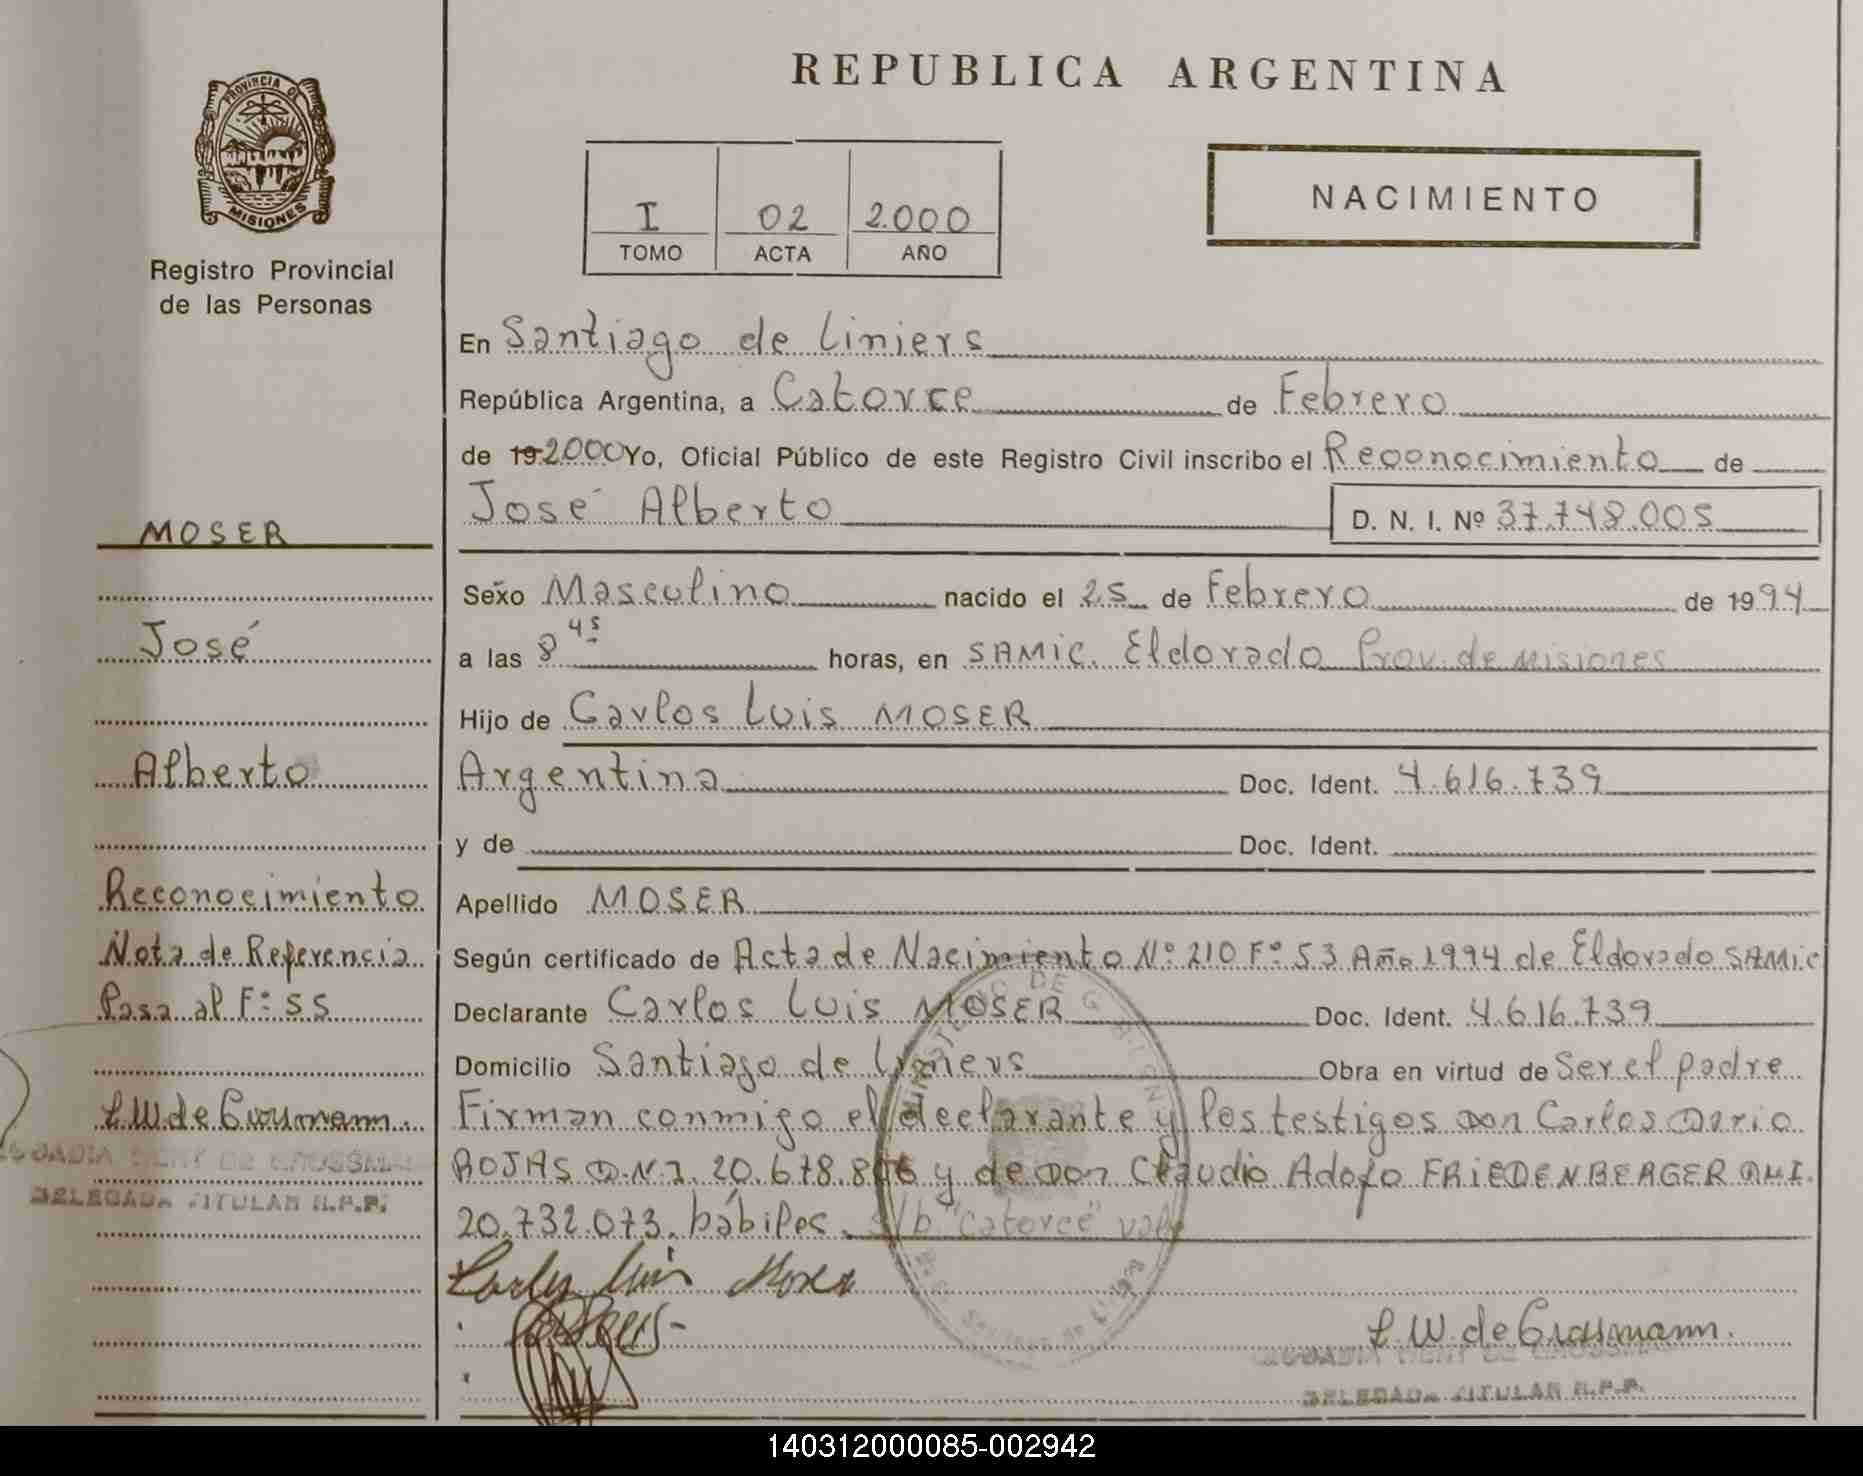 REPUBLICA ARGENTINA
PROVINCIA DE
MISIONES
Registro Provincial
de las Personas
I
TOMO
02
ACTA
2.000
AÑO
NACIMIENTO
En Santiago de Liniers
República Argentina, a Catorce de Febrero
de 19 2.000 Yo, Oficial Público de este Registro Civil inscribo el Reconocimiento de
José Alberto D. N. I. Nº 37.748.005
Sexo Masculino nacido el 25 de Febrero de 1994
a las 8 45 horas, en SAMIC. Eldorado Prov. de Misiones
Hijo de Carlos Luis MOSER
Argentina Doc. Ident. 4.616.739
y de Doc. Ident.
Apellido MOSER
Según certificado de Acta de Nacimiento Nº 210 Fº 53 Año 1994 de Eldorado SAMIC
Declarante Carlos Luis MOSER Doc. Ident. 4.616.739
Domicilio Santiago de Liniers Obra en virtud de Ser el padre
Firman conmigo el declarante y los testigos Don Carlos Dario
ROJAS D.N.I. 20.678.806 y de Don Claudio Adolfo FRIEDENBERGER DNI.
20.732.073. hábiles. s/b "catorce" vale
Carlos Luis Moser
L W. de Grossmann.
DELEGADA TITULAR R.P.P.
MOSER
José
Alberto
Reconocimiento
Nota de Referencia
Pasa al Fº 55
L W de Grossmann.
DELEGADA TITULAR R.P.P.
140312000085-002942